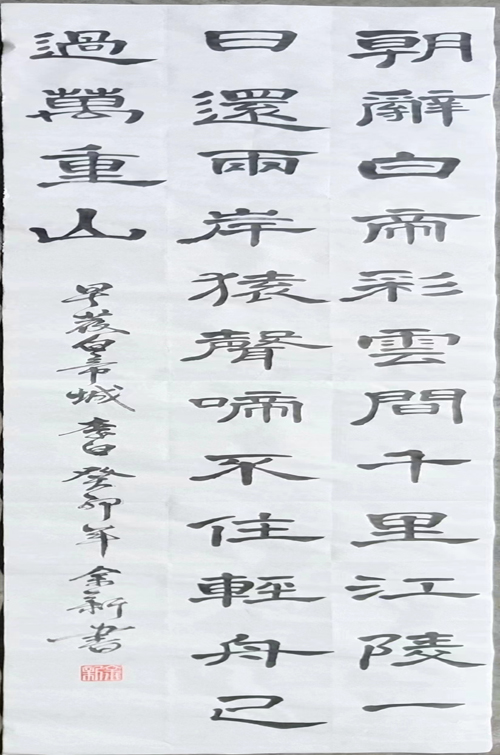 朝辭白帝彩雲間千里江陵一
日還兩岸猿聲啼不住輕舟已
過萬重山
早發白帝城 李白 癸卯年 金新書